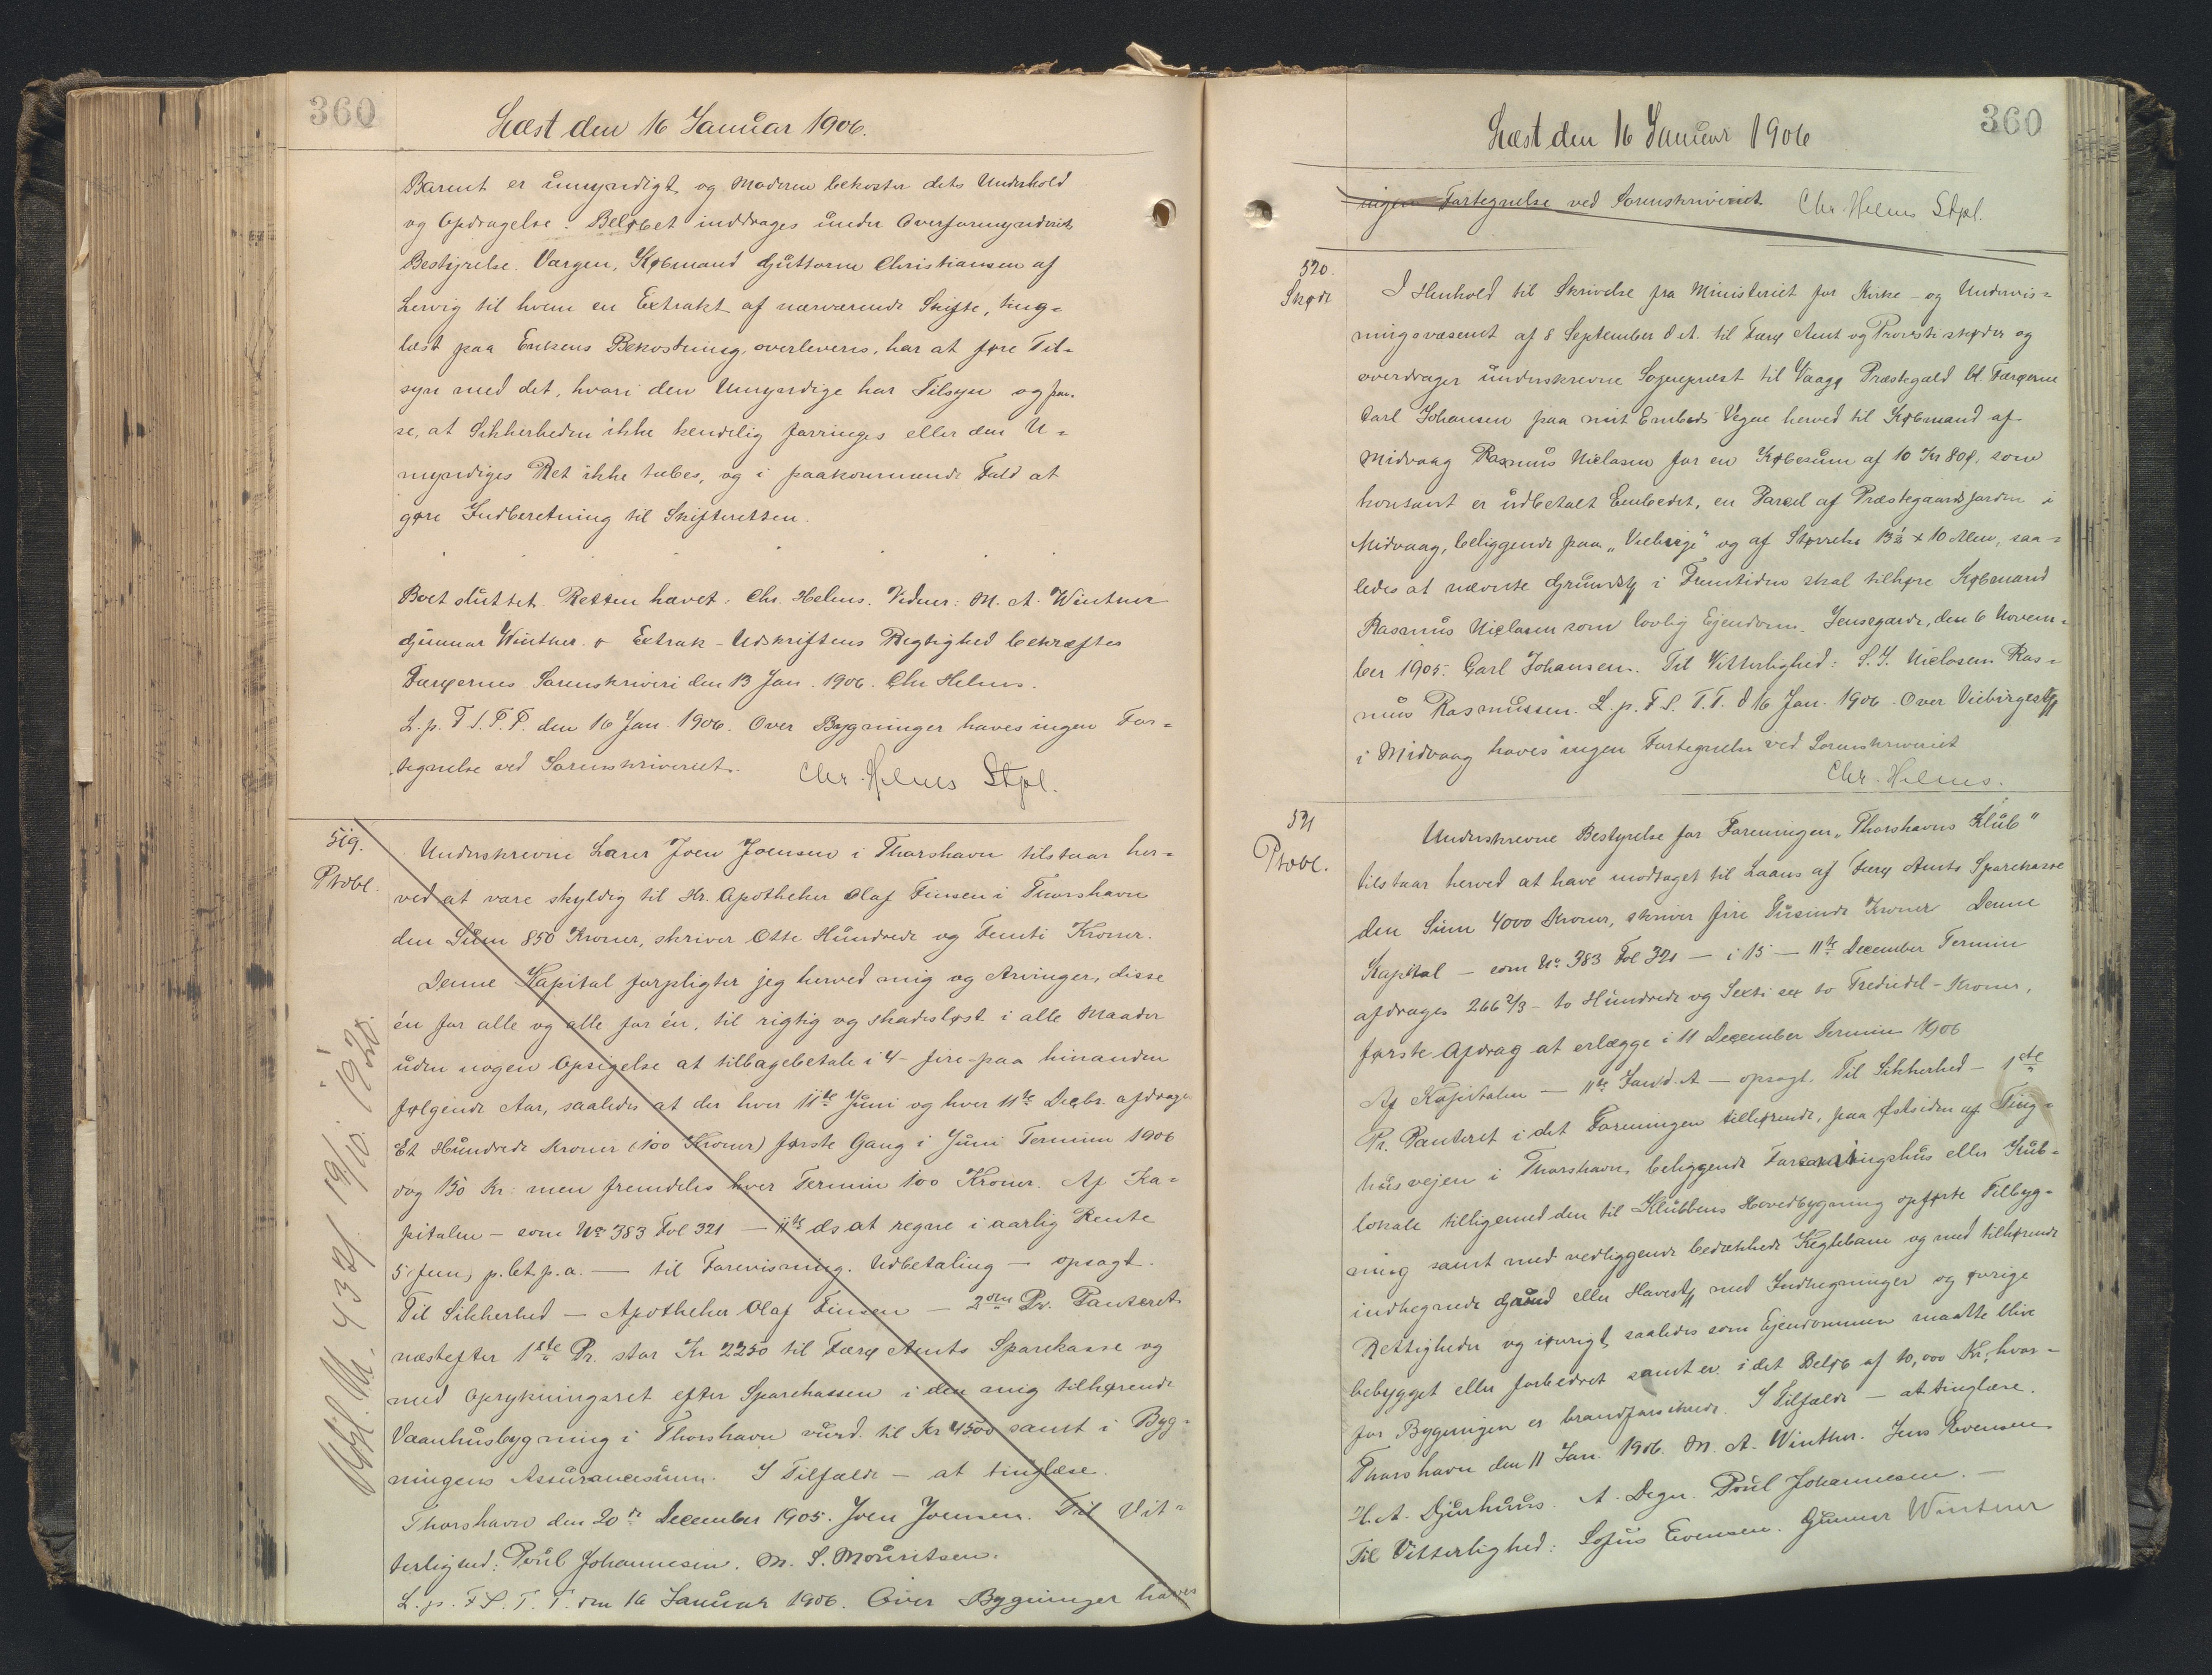 360
Læst den 16 Januar 1906.
Barnet er umyndigt og Moderen bekoster dets Underhold
og Opdragelse. Beløbet inddrages under Overformynderiets
Bestyrelse. Værgen, Købmand Guttorm Christiansen af
Lervig til hvem en Extrakt af nærværende Skifte, ting=
læst paa Enkens Bekostning, overleveres, har at føre Til=
syn med det, hvori den Umyndige har Tilsyn og paa-
se, at Sikkerheden ikke kendelig forringes eller den U=
myndiges Ret ikke tabes, og i paakommende Fald at
gøre Indberetning til Skifteretten.
Boet sluttet. Retten hævet. Chr. Helms. Vidner: M. A. Winther
Gunnar Winther. Extrakt-Udskriftens Rigtighed bekræftes
Færøernes Sorenskriveri den 13 Jan. 1906. Chr Helms.
L. p. F. S. T. T. den 16 Jan. 1906. Over Bygninger haves ingen For=
tegnelse ved Sorenskriveriet. Chr. Helms Stpl.
519.
Ptobl.
Underskrevne Lærer Joen Joensen i Thorshavn tilstaar her=
ved at være skyldig til Hr. Apotheker Olaf Finsen i Thorshavn
den Sum 850 Kroner, skriver Otte Hundrede og Femti Kroner.
Denne Kapital forpligter jeg herved mig og Arvinger, disse
én for alle og alle for én, til rigtig og skadesløst i alle Maader
uden nogen Opsigelse at tilbagebetale i 4 - fire - paa hinanden
følgende Aar, saaledes at der hver 11te Juni og hver 11te Decbr. afdrages
Et Hundrede Kroner (100 Kroner) første Gang i Juni Termin 1906
dog 150 Kr. men fremdeles hver Termin 100 Kroner. Af Ka=
pitalen - som No 383 Fol 321 - 11te ds at regne i aarlig Rente
5 fem, p. Ct. p. a. - til Forevisning. Udbetaling - opsagt.
Til Sikkerhed - Apotheker Olaf Finsen - 2den Pr. Panteret
næstefter 1ste Pr. stor Kr 2250 til Færø Amts Sparekasse og
med Oprykningsret efter Sparekassen i den mig tilhørende
Vaanhusbygning i Thorshavn vurd. til Kr 4500 samt i Byg=
ningens Assurancesum. I Tilfælde - at tinglæse.
Thorshavn den 20de December 1905. Joen Joensen. Til Vit=
terlighed: Poul Johannesen. M. S. Mouritsen.
L. p. F. S. T. T. den 16 Januar 1906. Over Bygninger haves
Afl. M. 433 f. 19/10. 1920.
360
Læst den 16 Januar 1906
ingen Fortegnelse ved Sorenskriveriet Chr. Helms Stpl.
520.
Skøde
I Henhold til Skrivelse fra Ministeriet for Kirke- og Undervis=
ningsvæsenet af 8 September d. A. til Færø Amt og Provsti skøder og
overdrager underskrevne Sognepræst til Vaagø Præstegæld bl. Færøerne
Carl Johansen paa mit Embeds Vegne herved til Købmand af
Midvaag Rasmus Niclasen for en Købesum af 10 Kr 80 ø, som
kontant er udbetalt Embedet, en Parcel af Præstegaardsjorden i
Midvaag, beliggende paa "Viebirge" og af Størrelse 13½ x 10 Alen, saa=
ledes at nævnte Grundst. i Fremtiden skal tilhøre Købmand
Rasmus Niclasen som lovlig Ejendom. Jensegarde, den 6 Novem=
ber 1905. Carl Johansen. Til Vitterlighed: S. J. Niclasen Ras=
mus Rasmussen. L. p. F. S. T. T. d. 16 Jan. 1906. Over Viebirgest.
i Midvaag haves ingen Fortegnelse ved Sorenskriveriet
Chr. Helms.
521
Ptobl.
Underskrevne Bestyrelse for Foreningen "Thorshavns Klub"
tilstaar herved at have modtaget til Laans af Færø Amts Sparekasse
den Sum 4000 Kroner, skriver fire Tusinde Kroner Denne
Kapital - som No 383 Fol 321 - i 15 - 11te December Termin
afdrages 266 2/3 - to Hundrede og Sexti sex to Trediedel - Kroner,
første Afdrag at erlægge i 11 December Termin 1906
Af Kapitalen - 11te Jan d. A - opsagt. Til Sikkerhed - 1ste
Pr. Panteret i det Foreningen tilhørende, paa Østsiden af Ting=
husvejen i Thorshavn beliggende Forsamlingshus eller Klub=
lokale tilligemed den til Klubbens Hovedbygning opførte Tilbyg=
ning samt med vedliggende bedækkede Keglebane og med tilhørende
indhegnede Grund eller Havest. med Indhegninger og øvrige
Rettigheder og iøvrigt saaledes som Ejendommen maatte blive
bebygget eller forbedret samt ev. i det Beløb af 10,000 Kr, hvor=
for Bygningen er brandforsikret. I Tilfælde - at tinglæse.
Thorshavn den 11 Jan. 1906. M. A. Winther. Jens Evensen
H. A. Djurhuus. A. Degn. Poul Johannesen. -
Til Vitterlighed: Sofus Evensen. Gunnar Winther